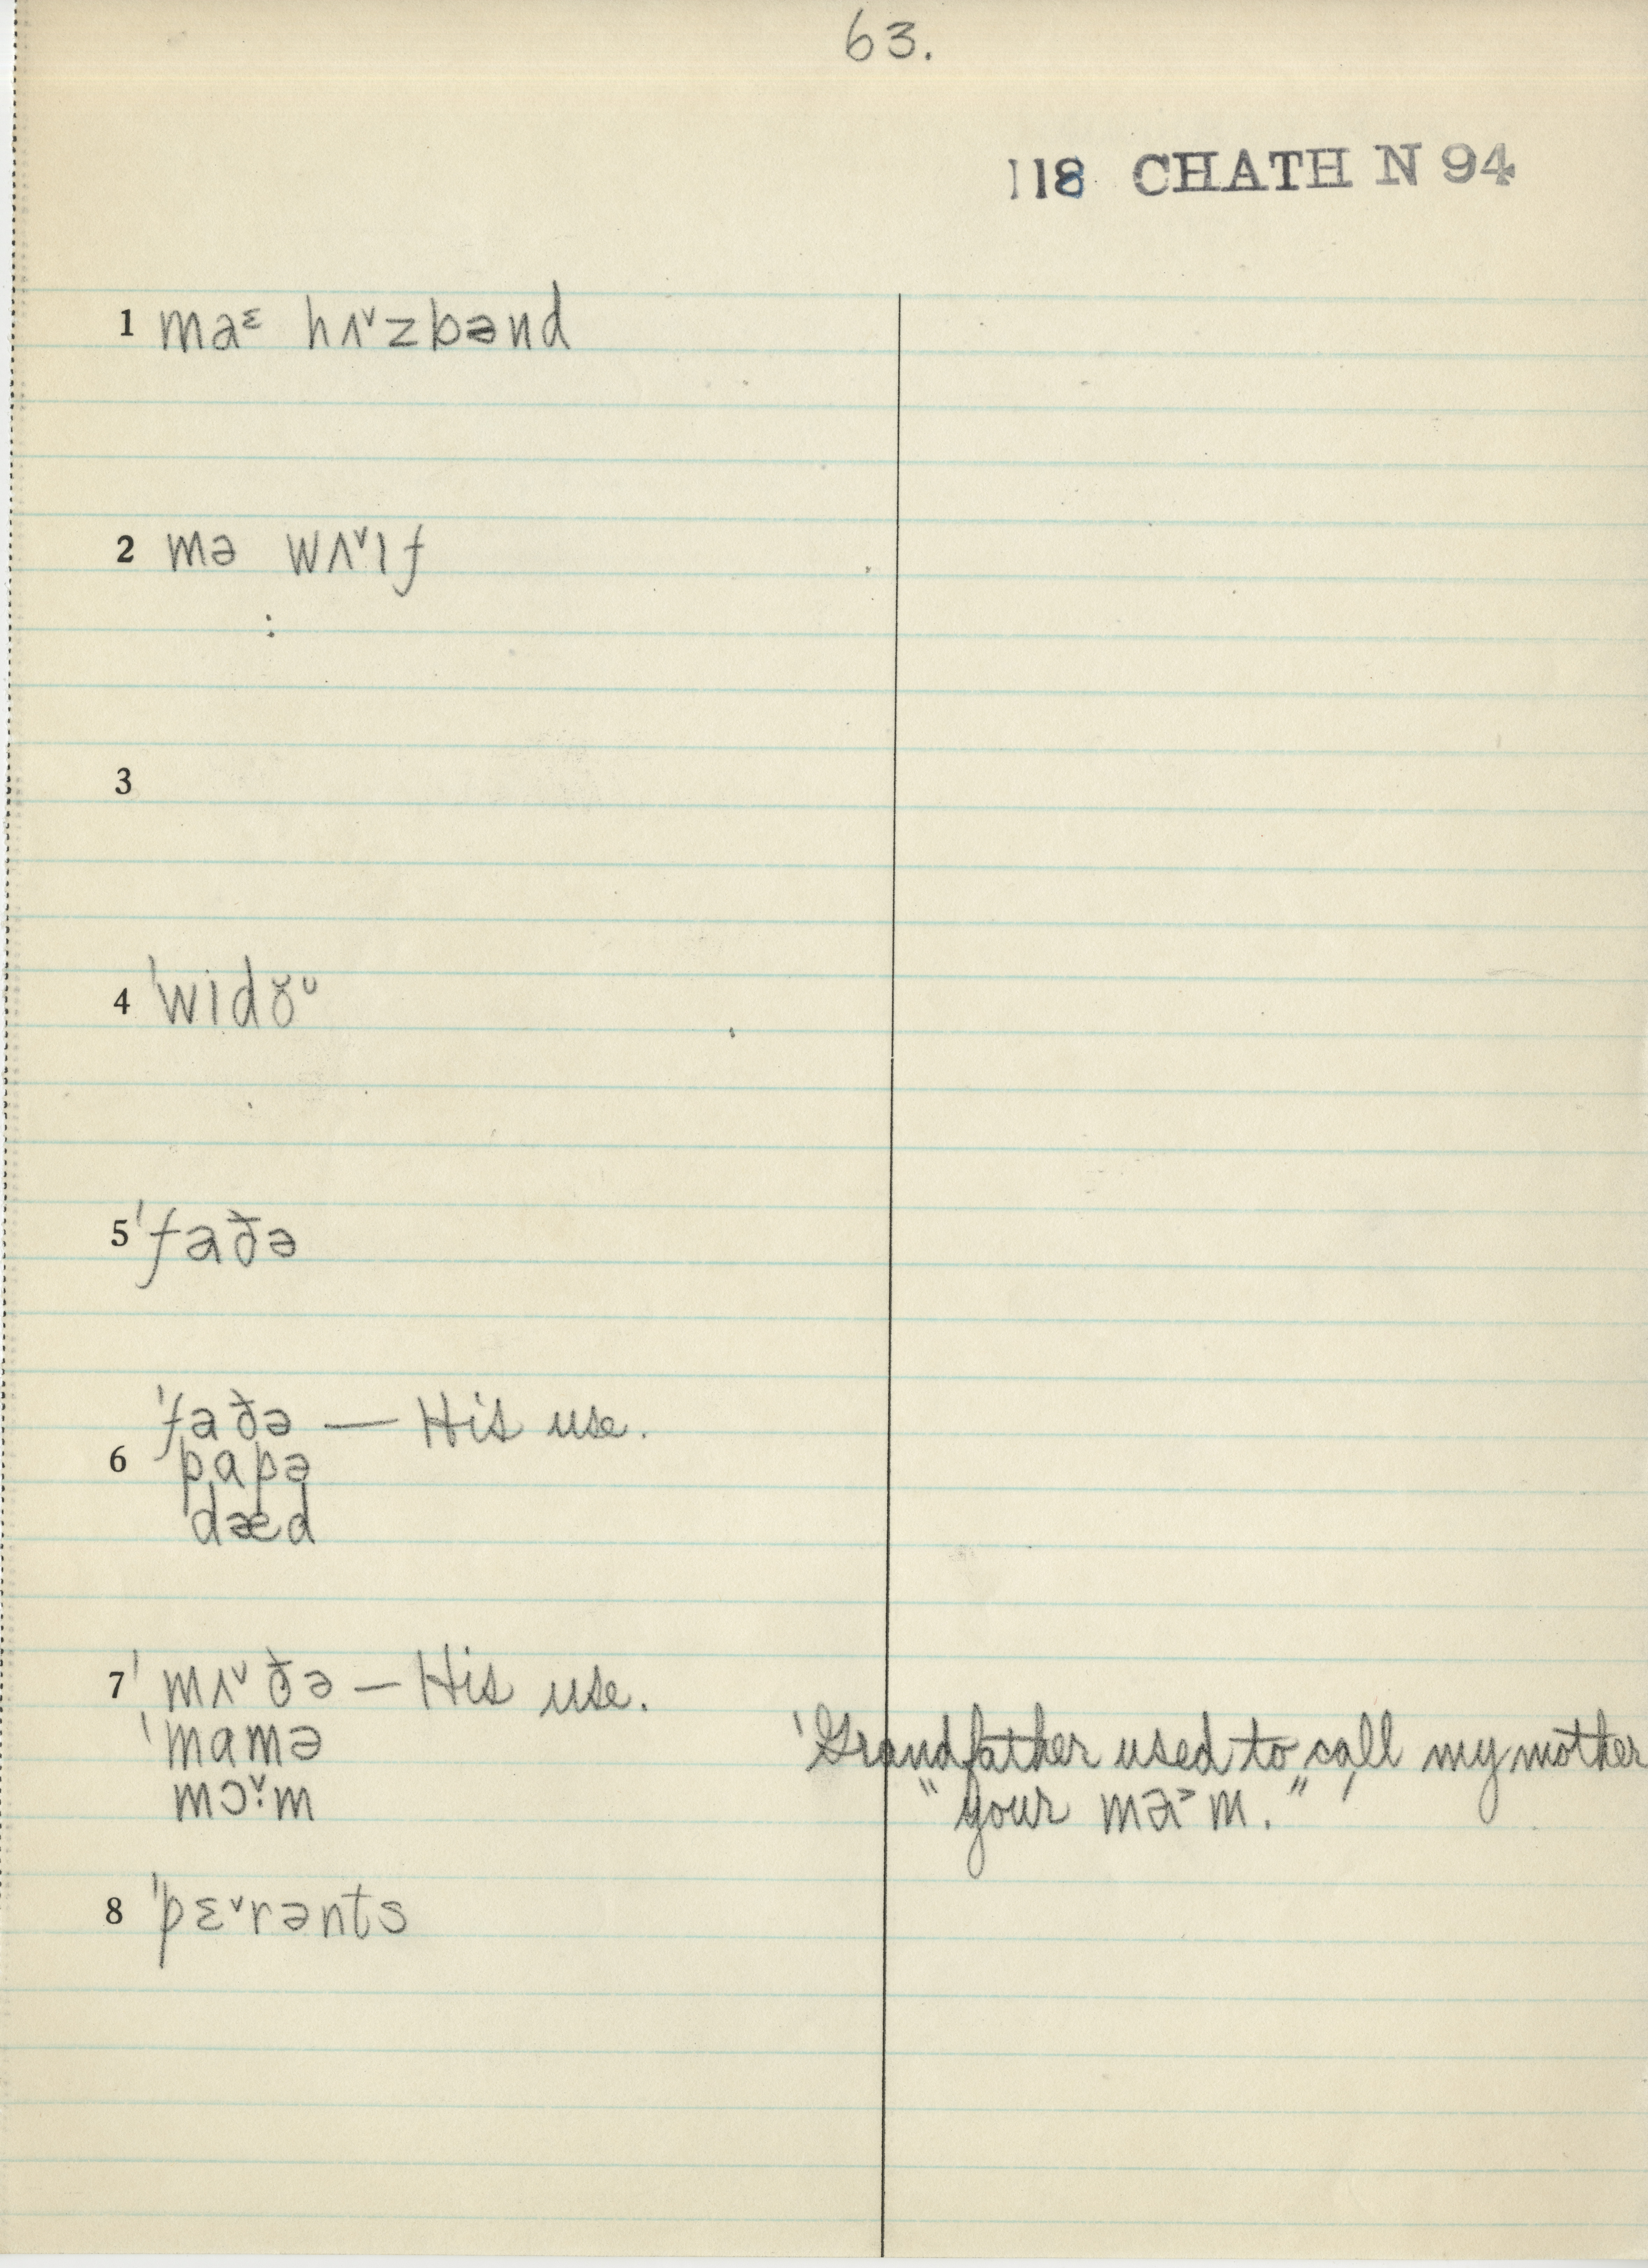 63.
118 CHATH N 94
1 maᵋ hʌ˅zbənd
2 mə wʌ˅ɪf
3
4 ˈwɪdɤ̆ᶷ
5 ˈfaðə
ˈfaðə — His use.
6 ˈpɑpə
dæd
7 ˈmʌ˅ðə — His use.
ˈmɑmə
mɔ˅·m
ˈGrandfather used to call my mother
"your ma˃m."
8 ˈpɛ˅rənts